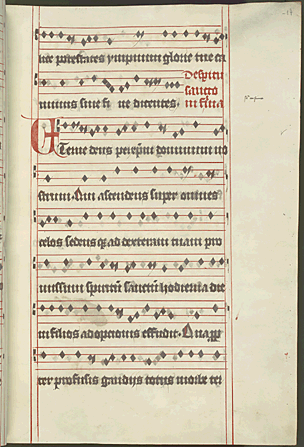 ute potestates ympnum glorie tue ca
De spiritu
sancto
in festa
nimus sine fi ne dicentes.
Eterne deus per xpm dominum no
strum. Qui ascendens super omnes
celos sedens qz ad dexteram tuam pro
missum spiritum sanctum hodierna die
in filios adoptionis effudit. Qua pp
ter profusis gaudijs totus in orbe ter